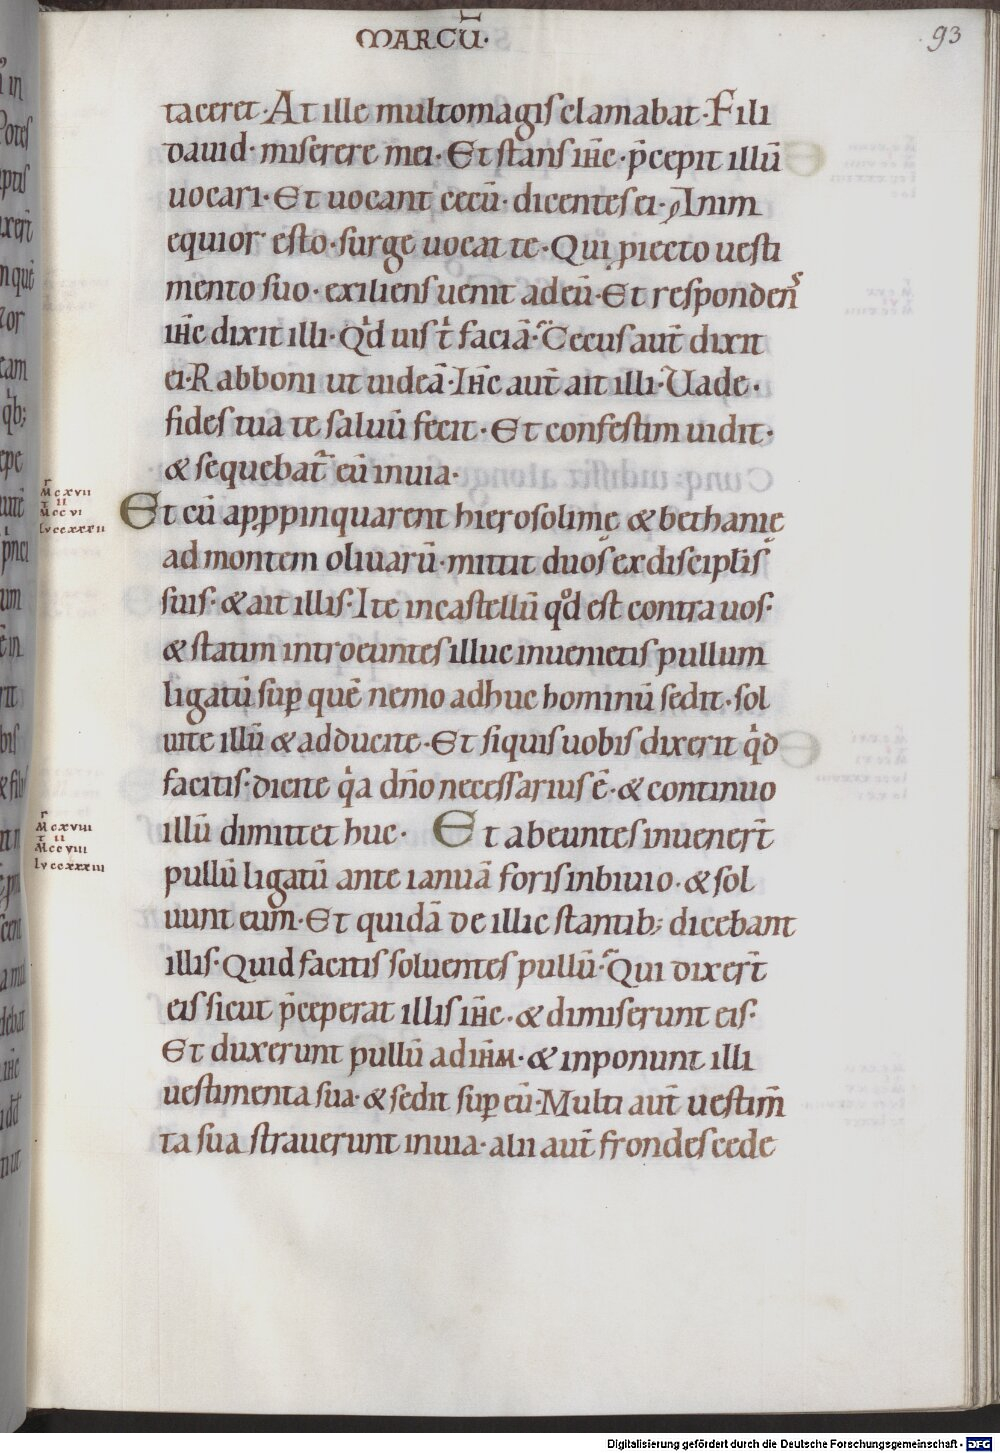 MARCŪ·
93
taceret·At ille multomagis clamabat·Fili
dauid·miserere mei·Et stans ihc̄·p̄cepit illū
uocari·Et uocant cecū·dicentes ei·Anim
equior esto·surge uocat te·Qui piecto uesti
mento suo·exiliens uenit adeū·Et responden̄s
ihc̄ dixit illi·Qd uis t̄ faciā·Cecus aut̄ dixit
ei·Rabboni ut uideā·Ihc̄ aut̄ ait illi·Uade·
fides tua te saluū fecit·Et confestim uidit·
& sequebat̄ eū inuia·
M cxvii
M cc vi
Lv ccxxxii
Et cū appppinquarent hierosolimę & bethanię
ad montem oliuarū·mittit duos ex discipĺis
suis·& ait illis·Ite incastellū qd̄ est contra uos·
& statim introeuntes illuc inuenietis pullum
ligatū sup̄ quē nemo adhuc hominū sedit·sol
uite illū & adducite·Et siquis uobis dixerit qd
facitis·dicite qa dn̄o necessarius ē·& continuo
M cxviii
M cc viii
Lv ccxxxiii
illū dimittet huc· Et abeuntes inuenert̄
pullū ligatū ante ianuā foris inbiuio·& sol
uunt eum·Et quidā de illic stantib; dicebant
illis·Quid facitis soluentes pullū·Qui dixert̄
eis sicut p̄ceperat illis ihc̄·& dimiserunt eis·
Et duxerunt pullū ad ihm̄·& inponunt illi
uestimenta sua·& sedit sup̄ eū·Multi aut̄ uestim̄
ta sua strauerunt inuia·alii aut̄ frondes cede
Digitalisierung gefördert durch die Deutsche Forschungsgemeinschaft - DFG